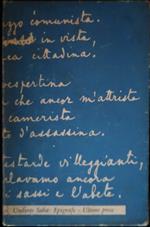 zzo comunista.
in vista,
ca cittadina.
vespertina
che ancor m'attrista
camerista
d'assassina.
tarde villeggianti,
lavamo ancora
i sassi e l'abete.
Umberto Saba: Epigrafe - Ultime prose